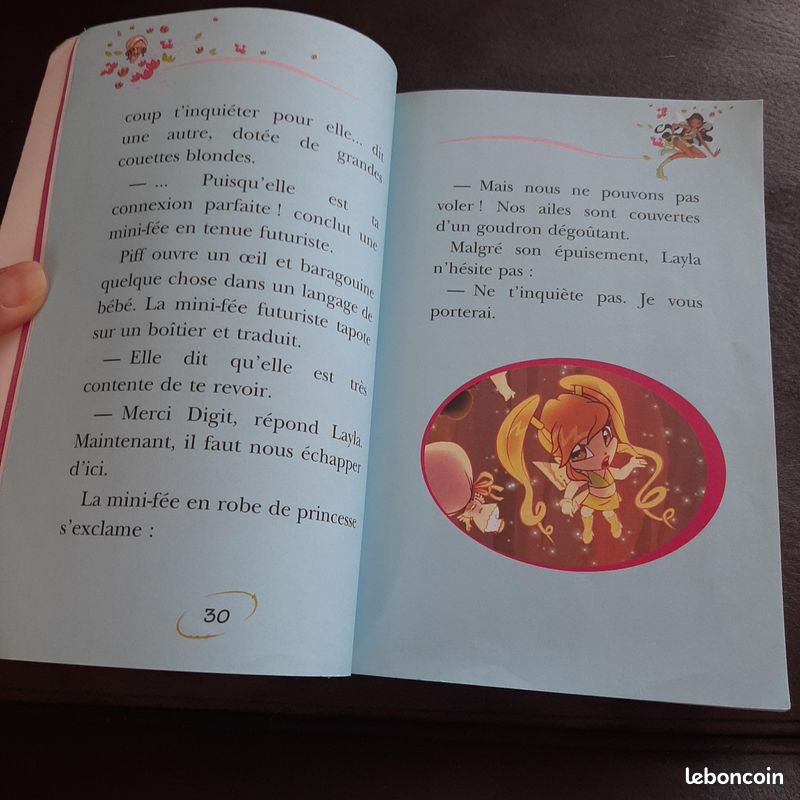 coup t'inquiéter pour elle... dit
une autre, dotée de grandes
couettes blondes.
— ... Puisqu'elle est ta
connexion parfaite ! conclut une
mini-fée en tenue futuriste.
Piff ouvre un œil et baragouine
quelque chose dans un langage de
bébé. La mini-fée futuriste tapote
sur un boîtier et traduit.
— Elle dit qu'elle est très
contente de te revoir.
— Merci Digit, répond Layla.
Maintenant, il faut nous échapper
d'ici.
La mini-fée en robe de princesse
s'exclame :
30
— Mais nous ne pouvons pas
voler ! Nos ailes sont couvertes
d'un goudron dégoûtant.
Malgré son épuisement, Layla
n'hésite pas :
— Ne t'inquiète pas. Je vous
porterai.
leboncoin